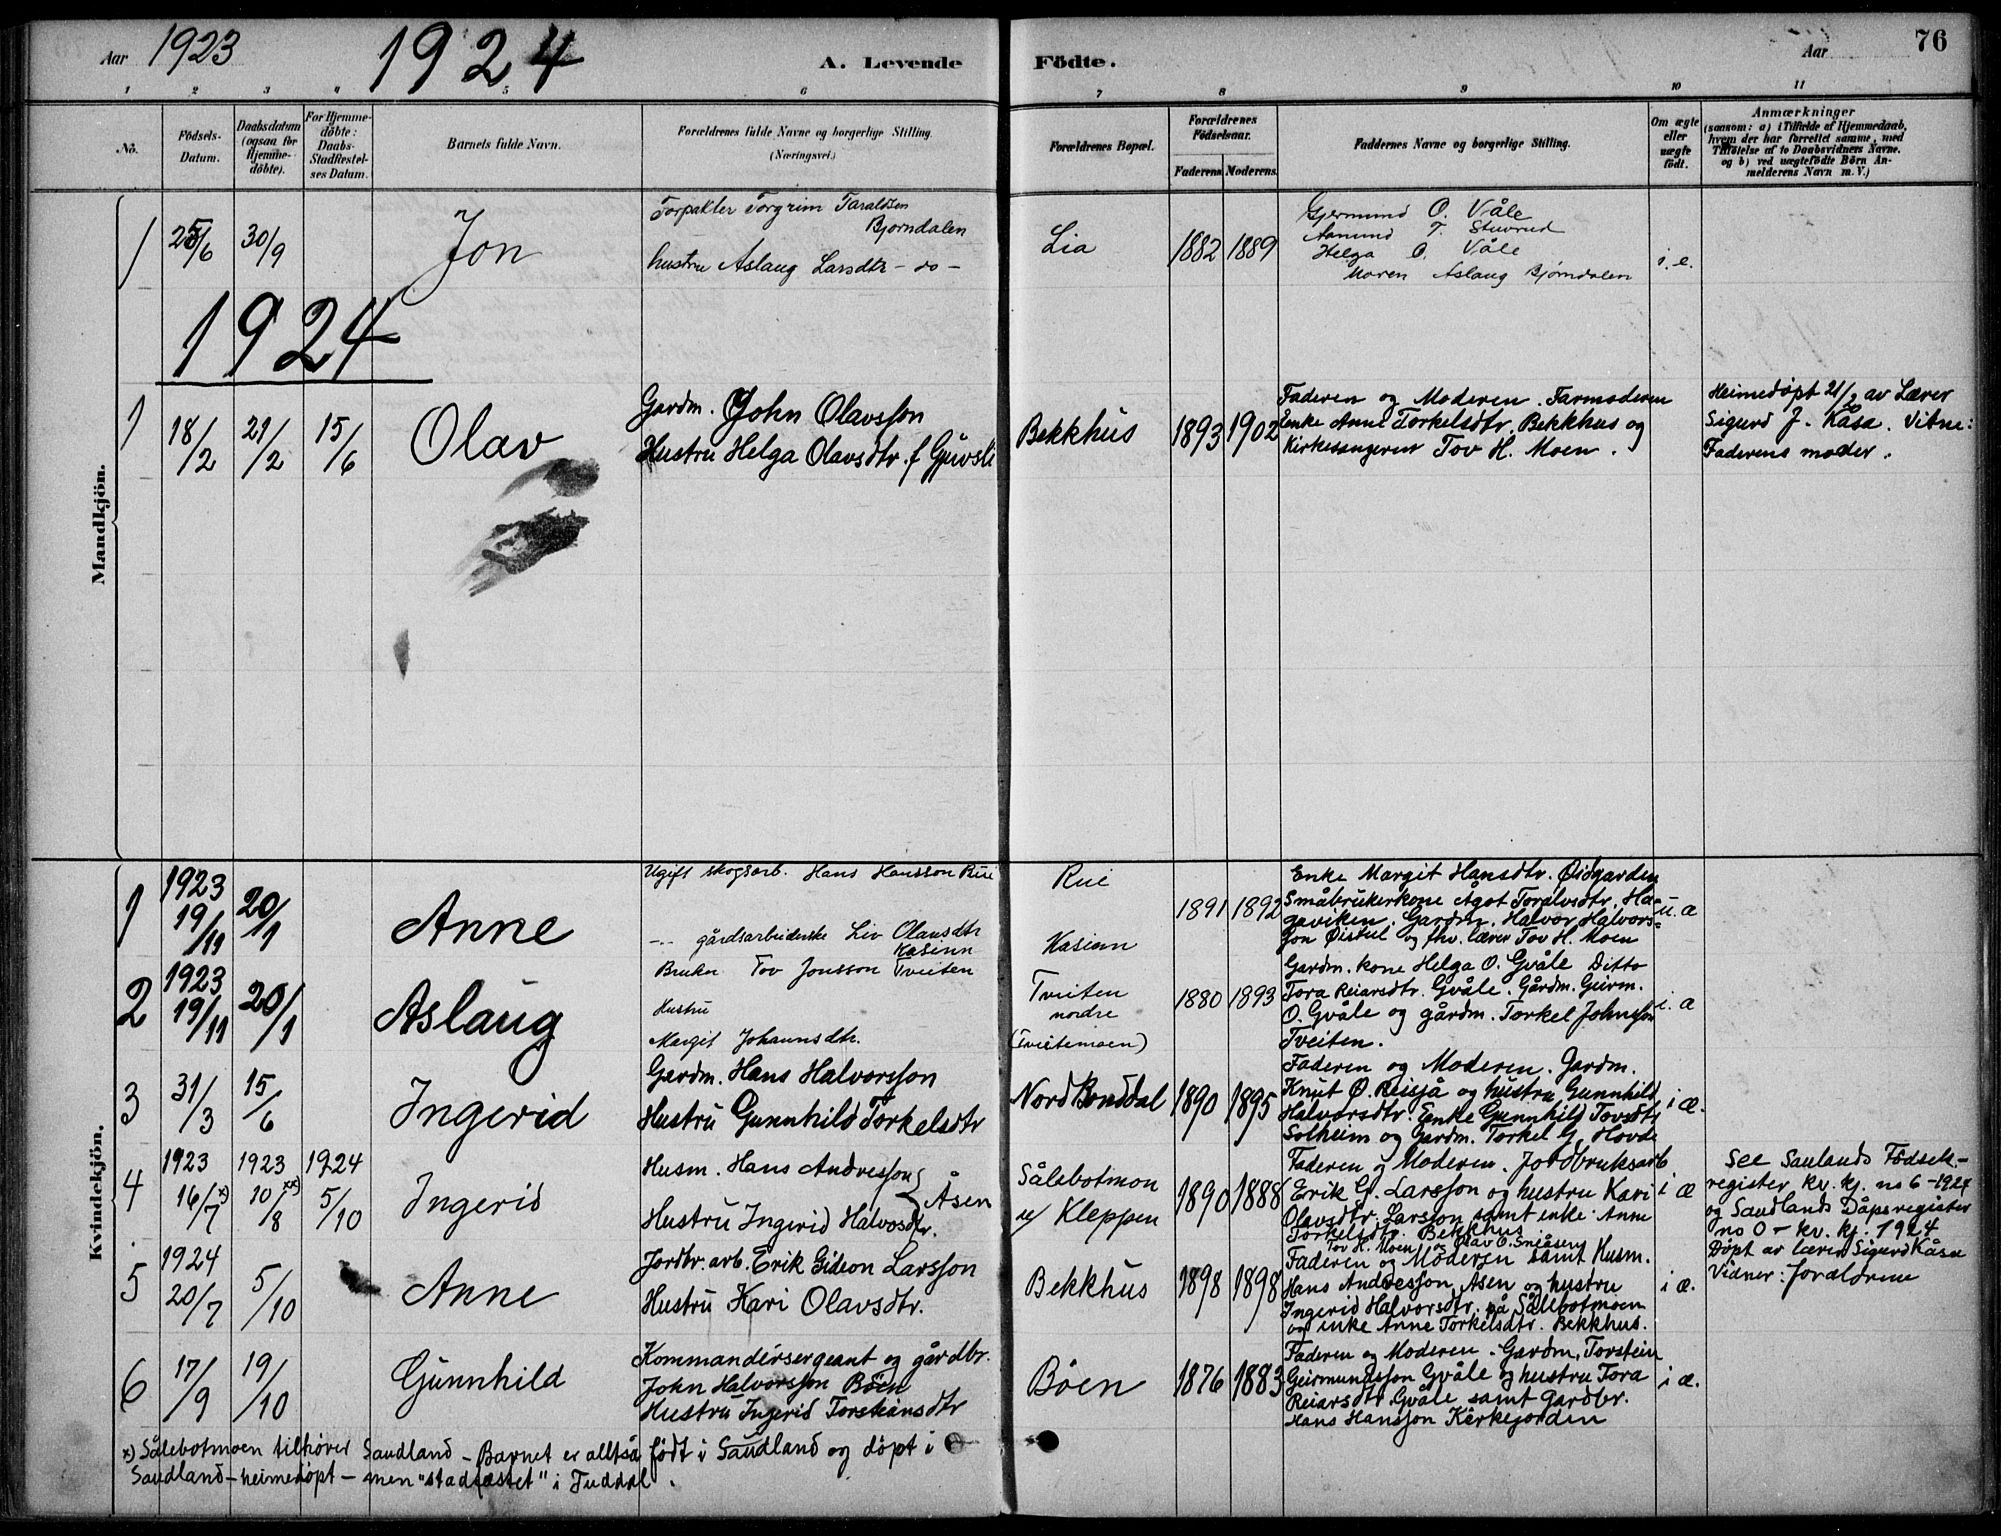 Aar 1923 1924 A. Levende Födte. Aar 76
1 2 3 4 5 6 7 8 9 10 11
No. Födsels-Datum. Daabsdatum (ogsaa for Hjemme-döbte). For Hjemme-döbte: Daabs-Stadfæstel-ses Datum. Barnets fulde Navn. Forældrenes fulde Navne og borgerlige Stilling. (Næringsvei.) Forældrenes Bopæl. Forældrenes Födselsaar. Faderens Moderens Faddernes Navne og borgerlige Stilling. Om ægte eller uægte födt. Anmærkninger
(saasom: a) i Tilfælde af Hjemmedaab,
hvem der har forrettet samme, med
Tilföielse af to Daabsvidners Navne,
og b) ved uægtefödte Börn An-
melderens Navn m. V.)
Mandkjön.
1 25/6 30/9 Jon
Forpakter Torgrim Taraldsen
Bjørndalen
hustru Aslaug Larsdtr - do -
Lia 1882 1889
Gjermund O. Våle
Aamund T. Stuvrud
Helga O. Våle
Maren Aslaug Bjørndalen
i. e.
1924
1 18/2 21/2 15/6 Olav
Gardm. John Olavsson
Hustru Helga Olavsdtr. f
Bekkhus 1893 1902
Faderen og Moderen. Farmoderen
enke Anne Torkelsdtr. Bekkhus og
Kirkesangeren Tov H. Moen.
Heimedøpt 21/2 av Lærer
Sigurd J. Kåsa. Vitne:
Faderens moder.
Kvindekjön.
1 1923 19/11 20/1 Anne
Ugift skogsarb. Hans Hansson Rue
-"- gårdsarbeiderske Liv Olavsdtr
Kasinn
Rue
Kasinn
1891 1892
Enke Margit Hansdtr. Øidgarden
Småbrukerkone Ågot Toralvsdtr. Ha-
gaviken. Gardm. Halvor Halvors-
son Øistul og fhv. lærer Tov H. Moen
u. æ
2 1923 19/11 20/1 Aslaug
Bruker Tov Jonsson Tveiten
Hustru
Margit Johannsdtr.
Tveiten
nordre
(Tveitemoen)
1880 1893
Gardm. kone Helga O. Gvåle Ditto
Tora Reiarsdtr. Gvåle. Gårdm. Geirm.
O. Gvåle og gårdm. Torkel Johnsson
Tveiten.
i. æ
3 31/3 15/6 Ingerid
Gardm. Hans Halvorsson
Hustru Gunnhild Torkelsdtr
Nord Bonddal 1890 1895
Faderen og Moderen. Gardm.
Knut O. Reisjå og hustru Gunnhild
Halvorsdtr. Enke Gunnhild Tovsdtr
Solheim og Gardm. Torkel G. Hovde
i æ.
4 1923 16/7 x) 1923 10/8 xx) 1924 5/10 Ingerid
Husm. Hans Andresson
Åsen
Hustru Ingerid Halvosdtr.
Sålebotmon
u/ Kleppen
1890 1888
Faderen og Moderen. Jordbruksarb
Erik G. Larsson og hustru Kari
Olavsdtr. Larsson samt enke Anne
Torkelsdtr. Bekkhus
Tov H. Moen og Olav O. Småsern
i æ
See Saulands Födsels-
register kv. kj. no 6 - 1924
og Saudlands Dåpsregister
no 0 - kv. kj. 1924
Døpt av lærer Sigurd Kåsa
Vidner: foreldrene
5 1924 20/7 5/10 Anne
Jordbr. arb. Erik Gideon Larsson
Hustru Kari Olavsdtr.
Bekkhus 1898 1898
Faderen og Moderen samt Husm.
Hans Andresson Åsen og hustru
Ingerid Halvorsdtr. på Sålebotmoen
og enke Anne Torkelsdtr. Bekkhus.
i æ.
6 17/9 19/10 Gunnhild
Kommandersergeant og gårdbr.
John Halvorsson Böen
Hustru Ingerid Torsteinsdtr
Böen 1876 1883
Faderen og Moderen. Gardm. Torstein
Geirmundsson Gvåle og hustru Tora
Reiarsdtr. Gvåle samt Gardbr.
Hans Hansson Kirkejorden
i æ.
x) Sålebotmoen tilhører Saudland - Barnet er alltså født i Saudland og døpt i
Saudland - heimedøpt - men "stadfæstet" i Tuddal.